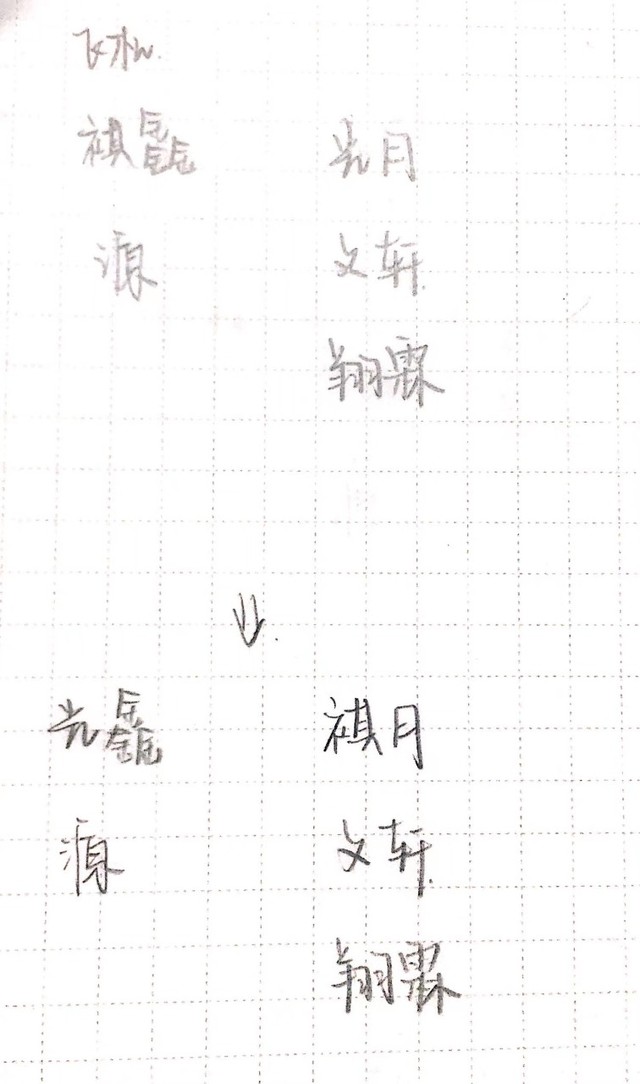 飞机
祺鑫 光月
源 文轩
翔霖
光鑫 祺月
源 文轩
翔霖